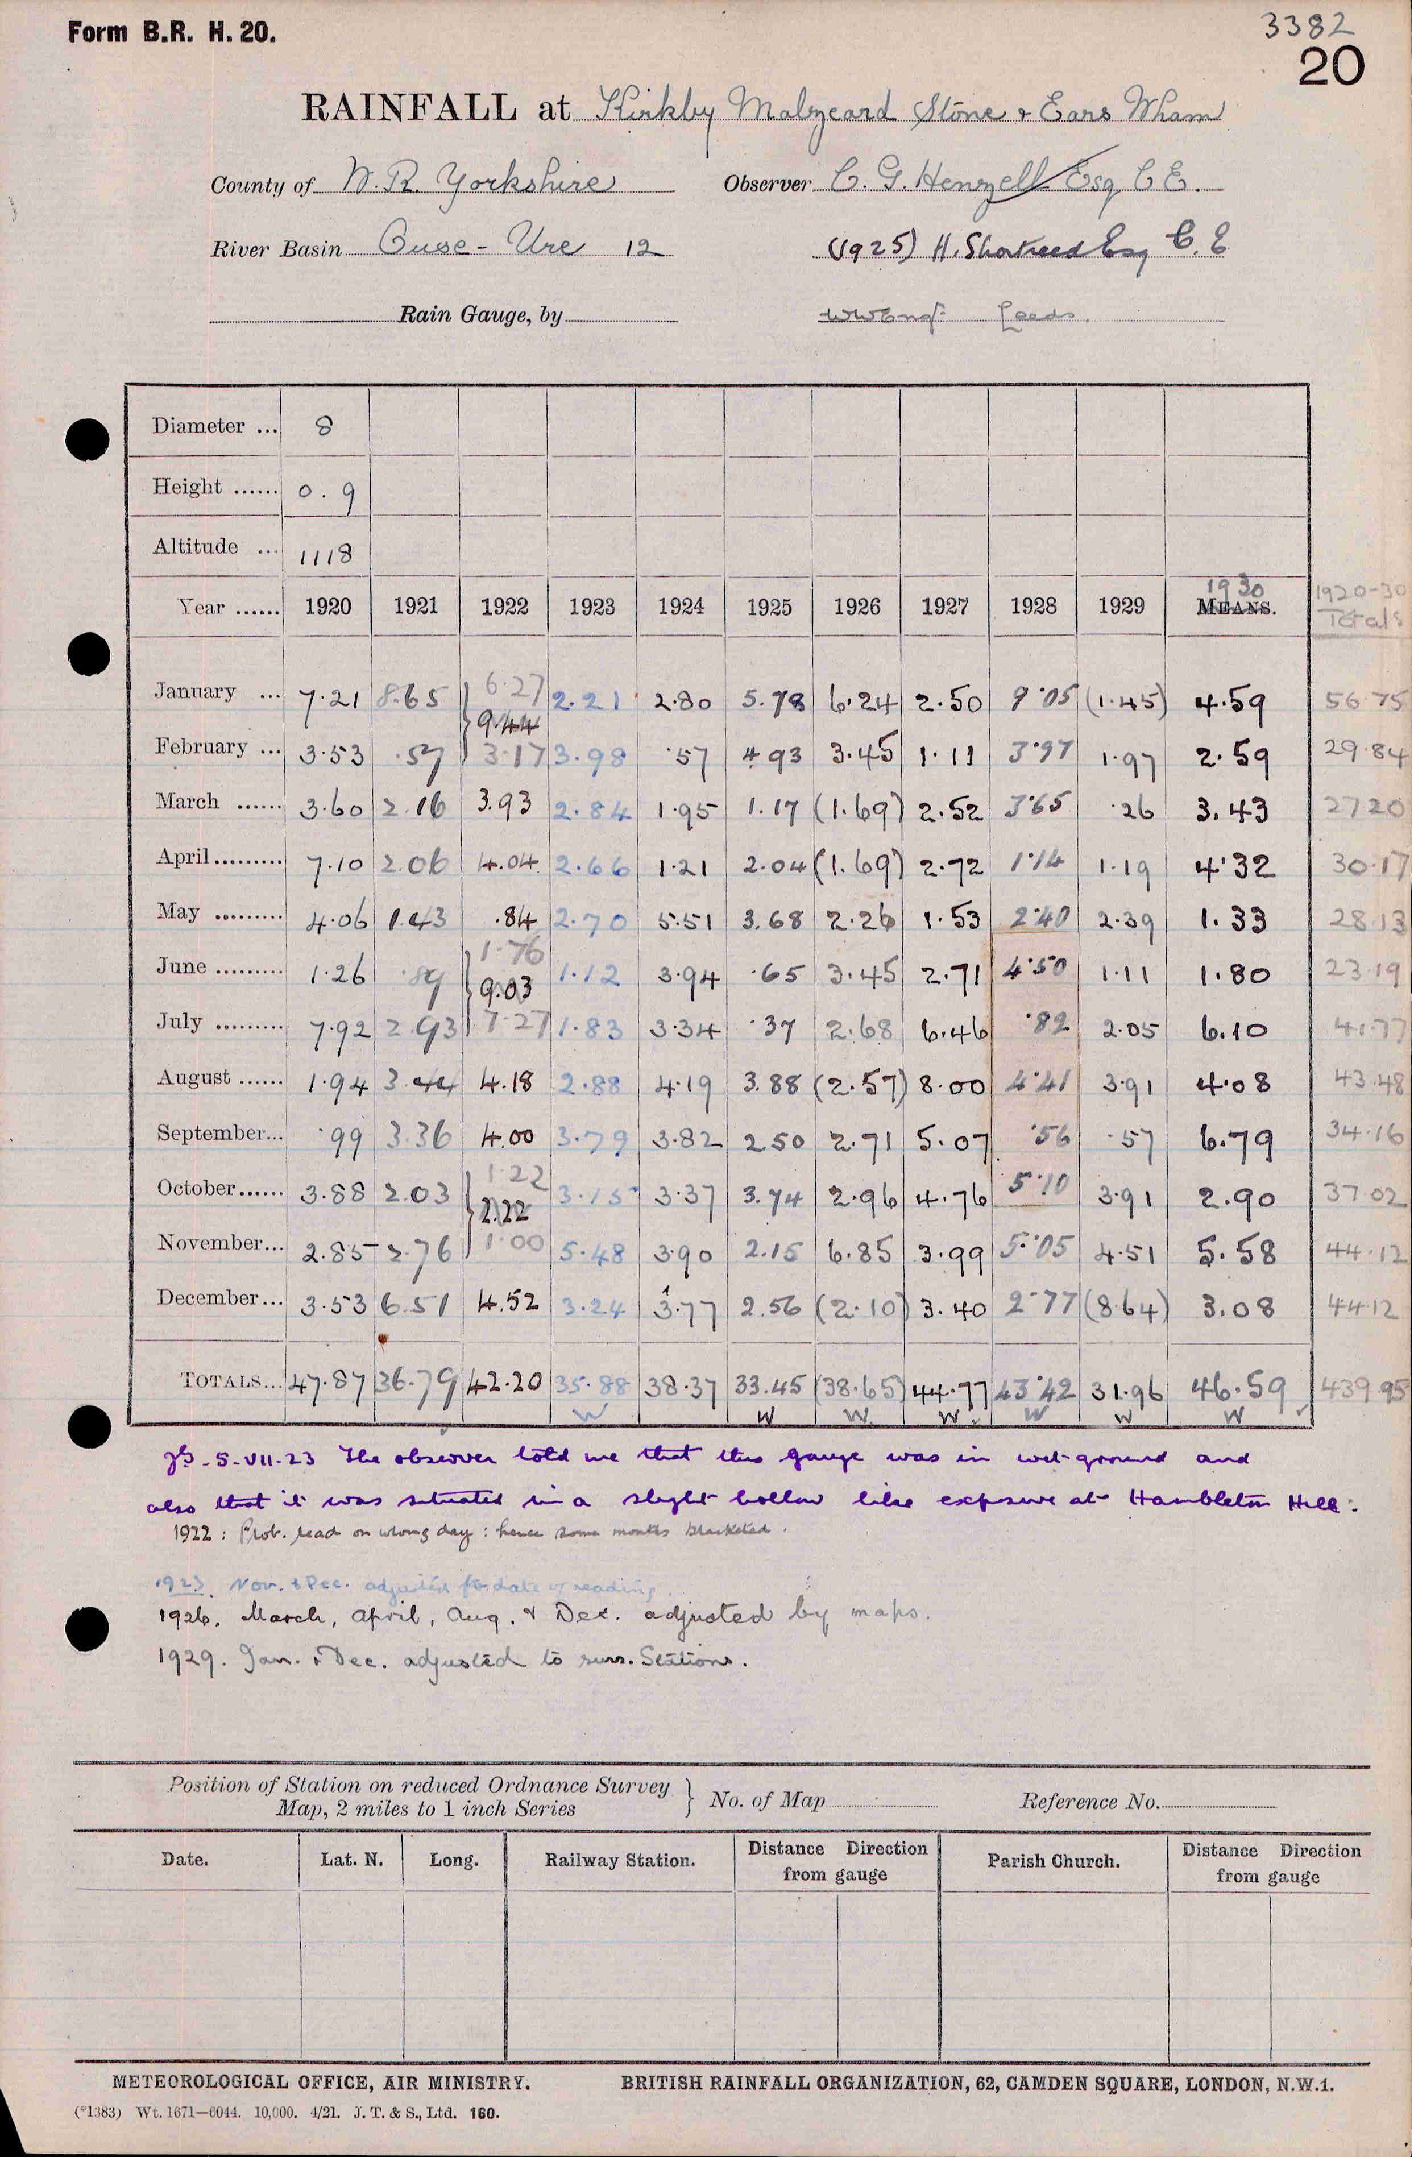 Form B.R. H. 20.
3382
20
RAINFALL at Kirkby Malzeard Stone & Ears Wham
County of W. R. Yorkshire Observer C. G. Henzell Esq C E.
River Basin Ouse - Ure 12 (1925) H. Shortreed Esq C. E
Rain Gauge, by WWEngr Leeds.
Diameter ... 8
Height ...... 0.9
Altitude ... 1118
Year ...... 1920 1921 1922 1923 1924 1925 1926 1927 1928 1929 1930 MEANS. 1920-30 Totals
January ... 7.21 8.65 6.27 9.44 2.21 2.80 5.78 6.24 2.50 9.05 (1.45) 4.59 56.75
February ... 3.53 .57 3.17 3.98 .57 4.93 3.45 1.11 3.97 1.97 2.59 29.84
March ...... 3.60 2.16 3.93 2.84 1.95 1.17 (1.69) 2.52 3.65 .26 3.43 27.20
April ......... 7.10 2.06 4.04 2.66 1.21 2.04 (1.69) 2.72 1.14 1.19 4.32 30.17
May ......... 4.06 1.43 .84 2.70 5.51 3.68 2.26 1.53 2.40 2.39 1.33 28.13
June ......... 1.26 .89 1.76 9.03 1.12 3.94 .65 3.45 2.71 4.50 1.11 1.80 23.19
July ......... 7.92 2.93 7.27 1.83 3.34 .37 2.68 6.46 .82 2.05 6.10 41.77
August ...... 1.94 3.44 4.18 2.88 4.19 3.88 (2.57) 8.00 4.41 3.91 4.08 43.48
September... .99 3.36 4.00 3.79 3.82 2.50 2.71 5.07 .56 .57 6.79 34.16
October...... 3.88 2.03 1.22 2.22 3.15 3.37 3.74 2.96 4.76 5.10 3.91 2.90 37.02
November... 2.85 2.76 1.00 5.48 3.90 2.15 6.85 3.99 5.05 4.51 5.58 44.12
December... 3.53 6.51 4.52 3.24 3.77 2.56 (2.10) 3.40 2.77 (8.64) 3.08 44.12
TOTALS... 47.87 36.79 42.20 35.88 38.37 33.45 (38.65) 44.77 43.42 31.96 46.59 439.95
W W W W W W W
5-VII-23 The observer told me that this gauge was in wet ground and
also that it was situated in a slight hollow like exposure at Hambleton Hill.
1922 : Prob. read on wrong day : hence some months bracketed.
1923. Nov. & Dec. adjusted for date of reading.
1926. March, April, Aug. & Dec. adjusted by maps.
1929. Jan. & Dec. adjusted to surr. Stations.
Position of Station on reduced Ordnance Survey Map, 2 miles to 1 inch Series } No. of Map Reference No.
Date. Lat. N. Long. Railway Station. Distance Direction from gauge Parish Church. Distance Direction from gauge
METEOROLOGICAL OFFICE, AIR MINISTRY. BRITISH RAINFALL ORGANIZATION, 62, CAMDEN SQUARE, LONDON, N.W.1.
(*1383) Wt. 1671—6044. 10,000. 4/21. J. T. & S., Ltd. 160.